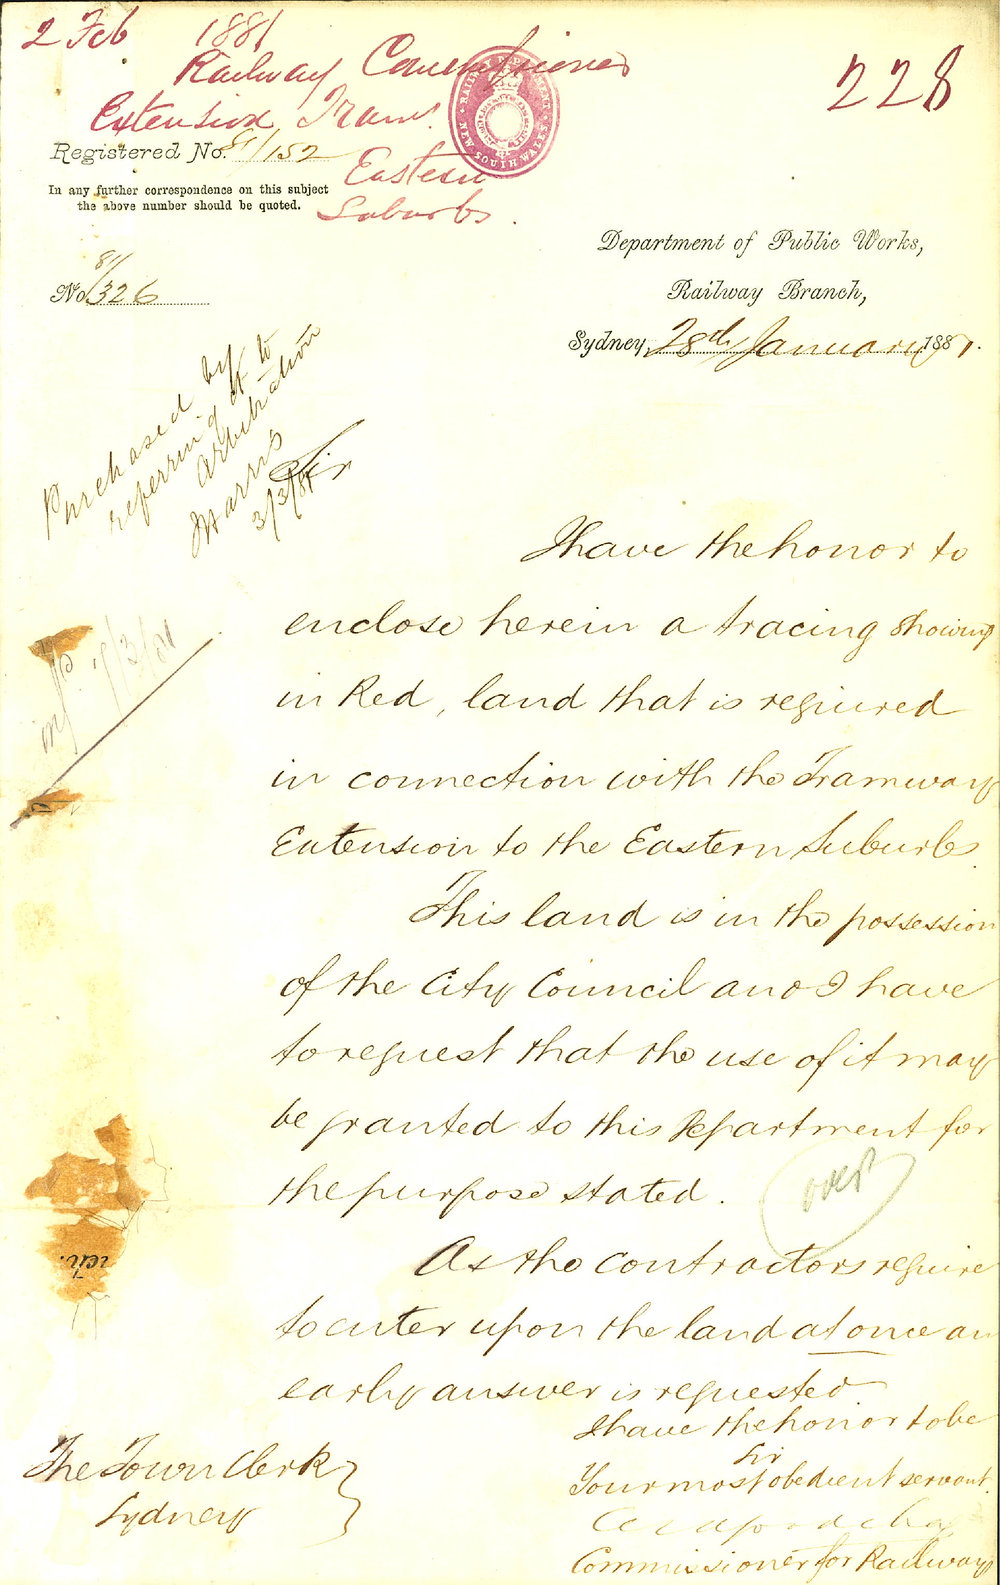 2 Feb 1881
228
Railway Commissioner
Extension Tram.
RAILWAY DEPARTMENT
NEW SOUTH WALES
Registered No. 81/152
Eastern
Suburbs.
In any further correspondence on this subject
the above number should be quoted.
Department of Public Works,
81/
No 326
Railway Branch,
Sydney, 28th January 1881.
Purchased by
referring it to
arbitration
Harris
3/3/81
Sir
I have the honor to
enclose herein a tracing showing
in Red, land that is required
in connection with the Tramway
Extension to the Eastern Suburbs.
This land is in the possession
of the City Council and I have
to request that the use of it may
be granted to this Department for
the purpose stated.
over
As the contractors require
to enter upon the land at once an
early answer is requested
I have the honor to be
Sir
Your most obedient servant.
Commissioner for Railways
The Town Clerk
Sydney